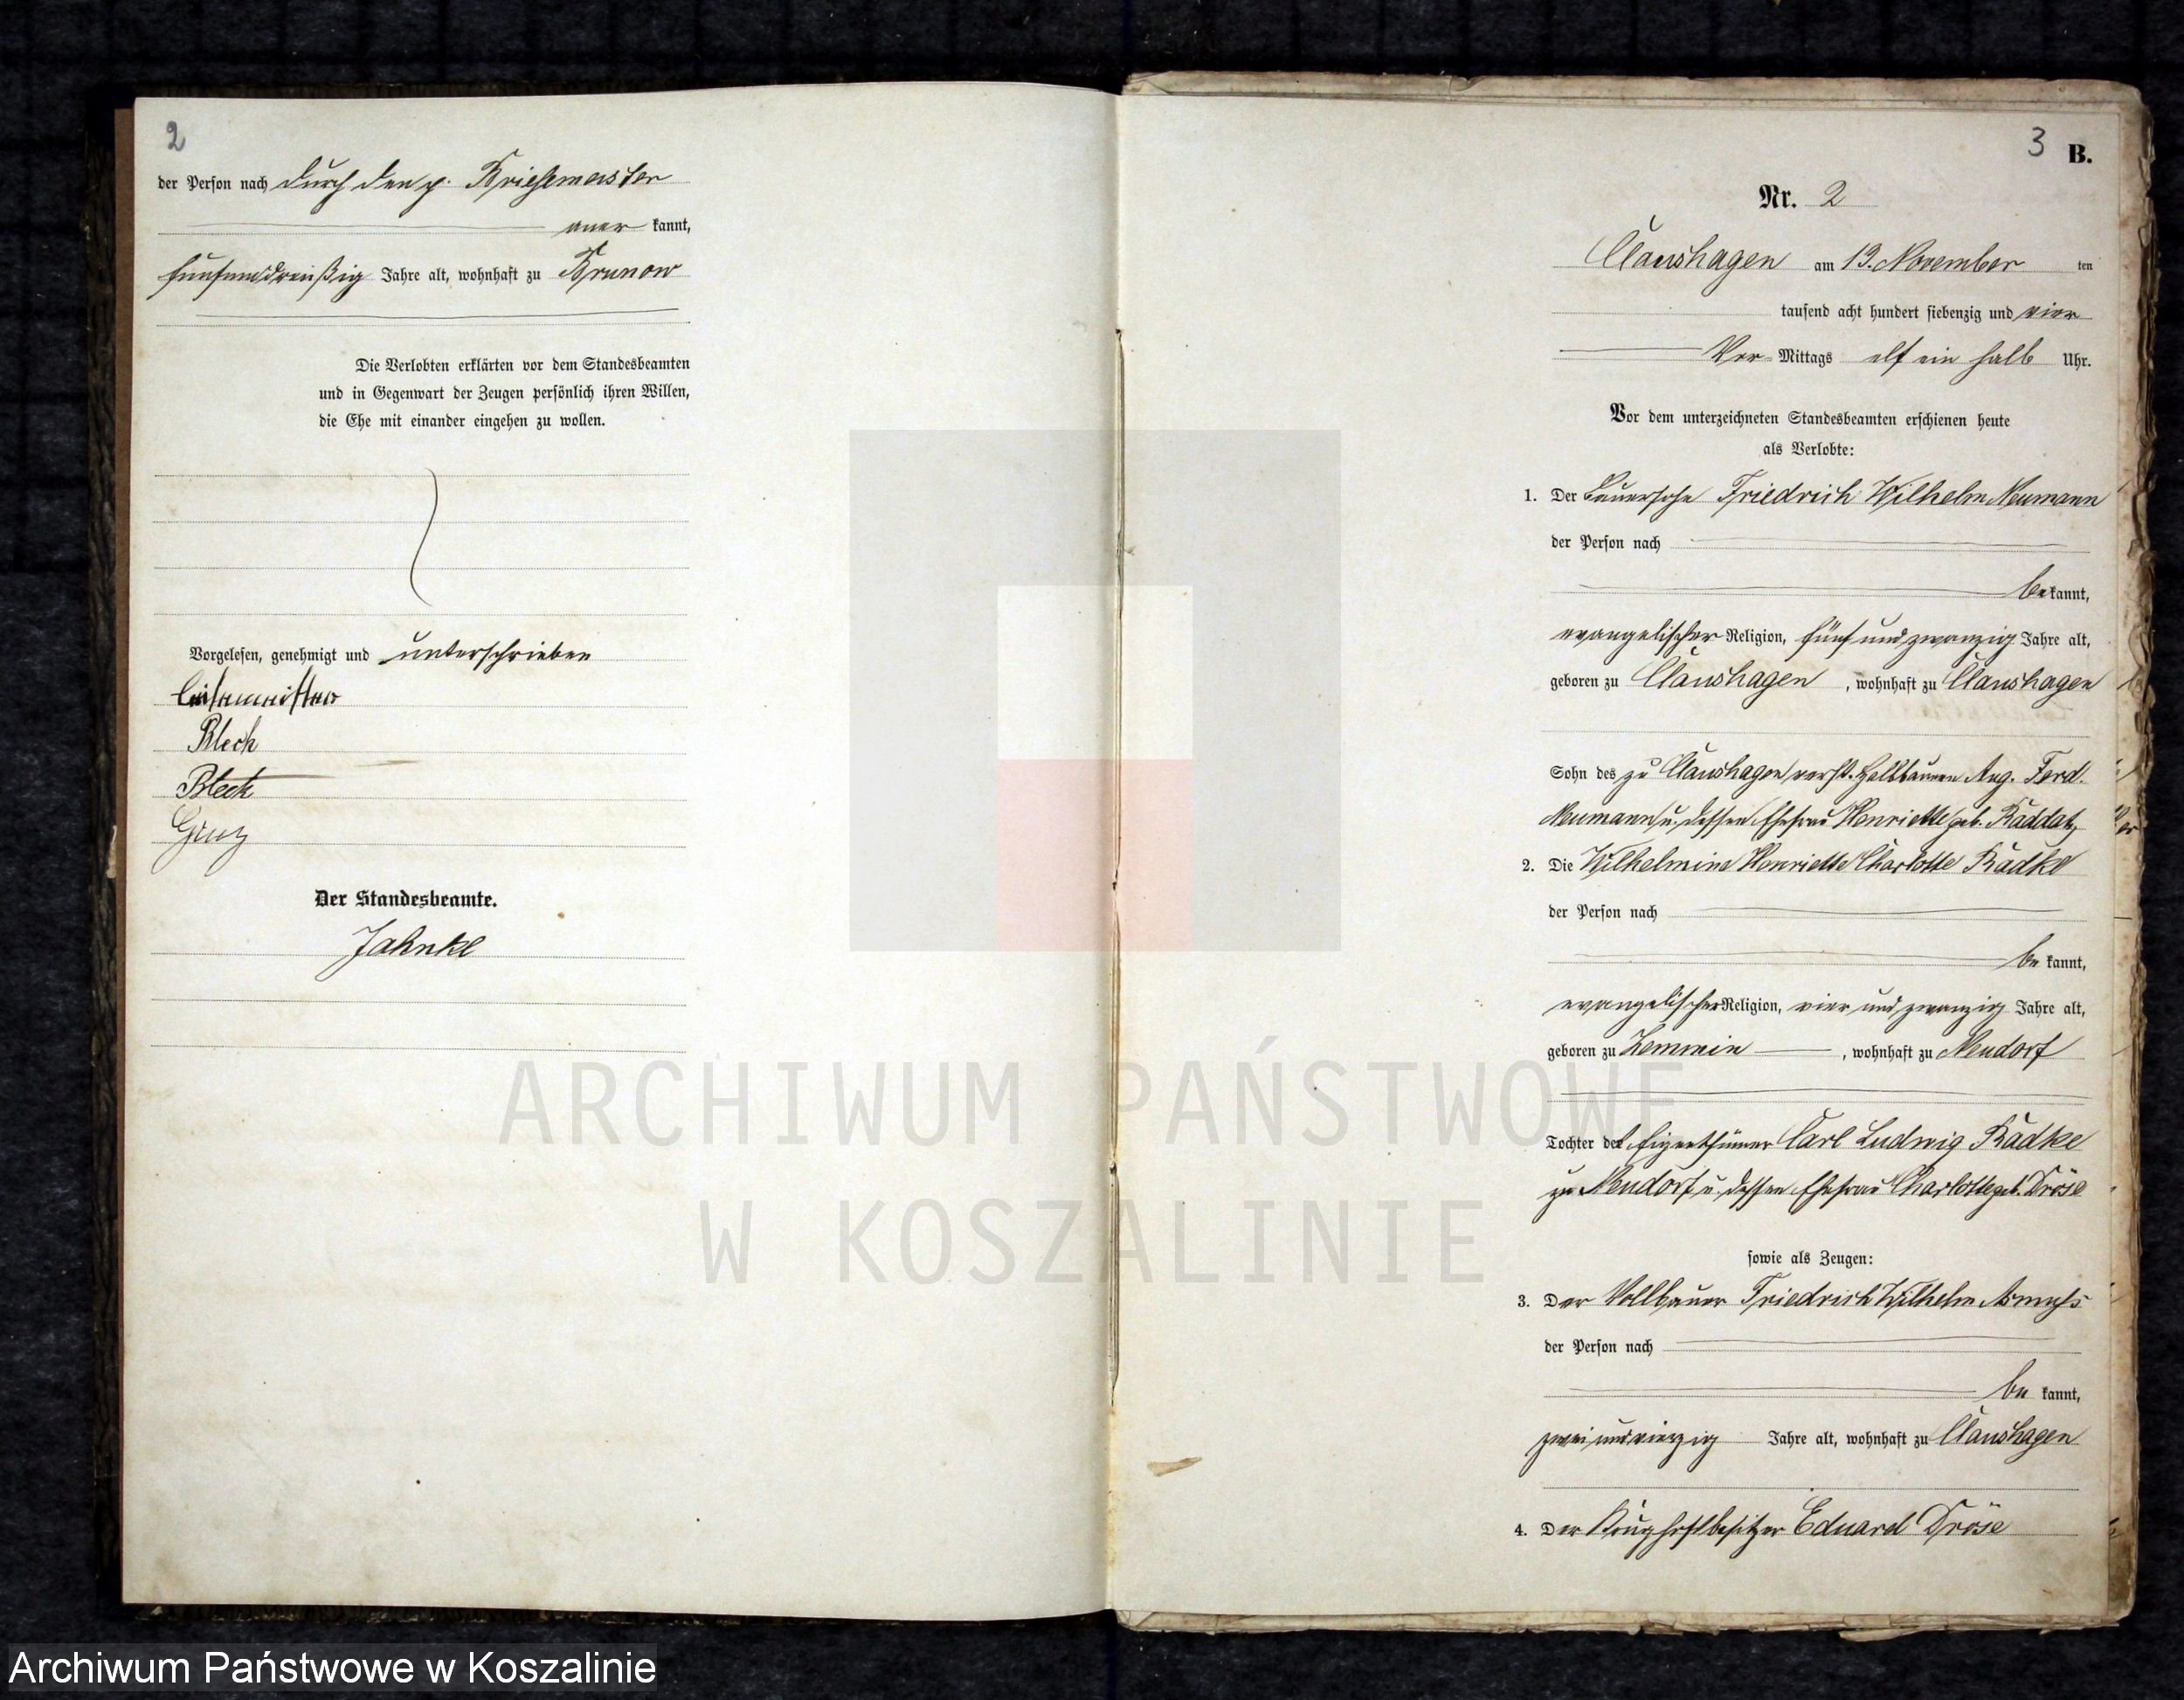 2
der Person nach durch den p. Briesemeister
aner kannt,
fünfunddreißig Jahre alt, wohnhaft zu Brunow
Die Verlobten erklärten vor dem Standesbeamten
und in Gegenwart der Zeugen persönlich ihren Willen,
die Ehe mit einander eingehen zu wollen.
Vorgelesen, genehmigt und unterschrieben
Blech
Der Standesbeamte.
Jahnke
3 B.
Nr. 2
Claushagen am 13. November ten
tausend acht hundert siebenzig und vier
Vor Mittags elf ein halb Uhr.
Vor dem unterzeichneten Standesbeamten erschienen heute
als Verlobte:
1. Der Bauersohn Friedrich Wilhelm Neumann
der Person nach
bekannt,
evangelischer Religion, fünf und zwanzig Jahre alt,
geboren zu Claushagen, wohnhaft zu Claushagen
Sohn des zu Claushagen verst. Halbbauern Aug. Ferd.
Neumann u. dessen Ehefrau Henriette geb. Raddatz
2. Die Wilhelmine Henriette Charlotte Radke
der Person nach
be kannt,
evangelischer Religion, vier und zwanzig Jahre alt,
geboren zu Zemmin, wohnhaft zu Neudorf
Tochter des Eigenthümer Carl Ludwig Radke
zu Neudorf u. dessen Ehefrau Charlotte geb. Dröse
sowie als Zeugen:
3. Der Vollbauer Friedrich Wilhelm Asmuss
der Person nach
be kannt,
zwei und vierzig Jahre alt, wohnhaft zu Claushagen
4. Der Eduard Dröse
ARCHIWUM PAŃSTWOWE
W KOSZALINIE
Archiwum Państwowe w Koszalinie